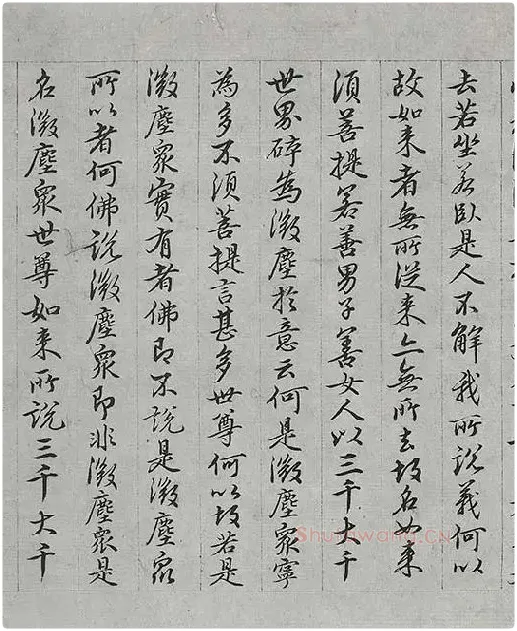 去若坐若臥是人不解我所說義何以
故如来者無所從来亦無所去故名如来
須菩提若善男子善女人以三千大千
世界碎為微塵於意云何是微塵衆寧
為多不須菩提言甚多世尊何以故若是
微塵衆實有者佛即不說是微塵衆
所以者何佛說微塵衆即非微塵衆是
名微塵衆世尊如来所說三千大千
Shufawang.CN